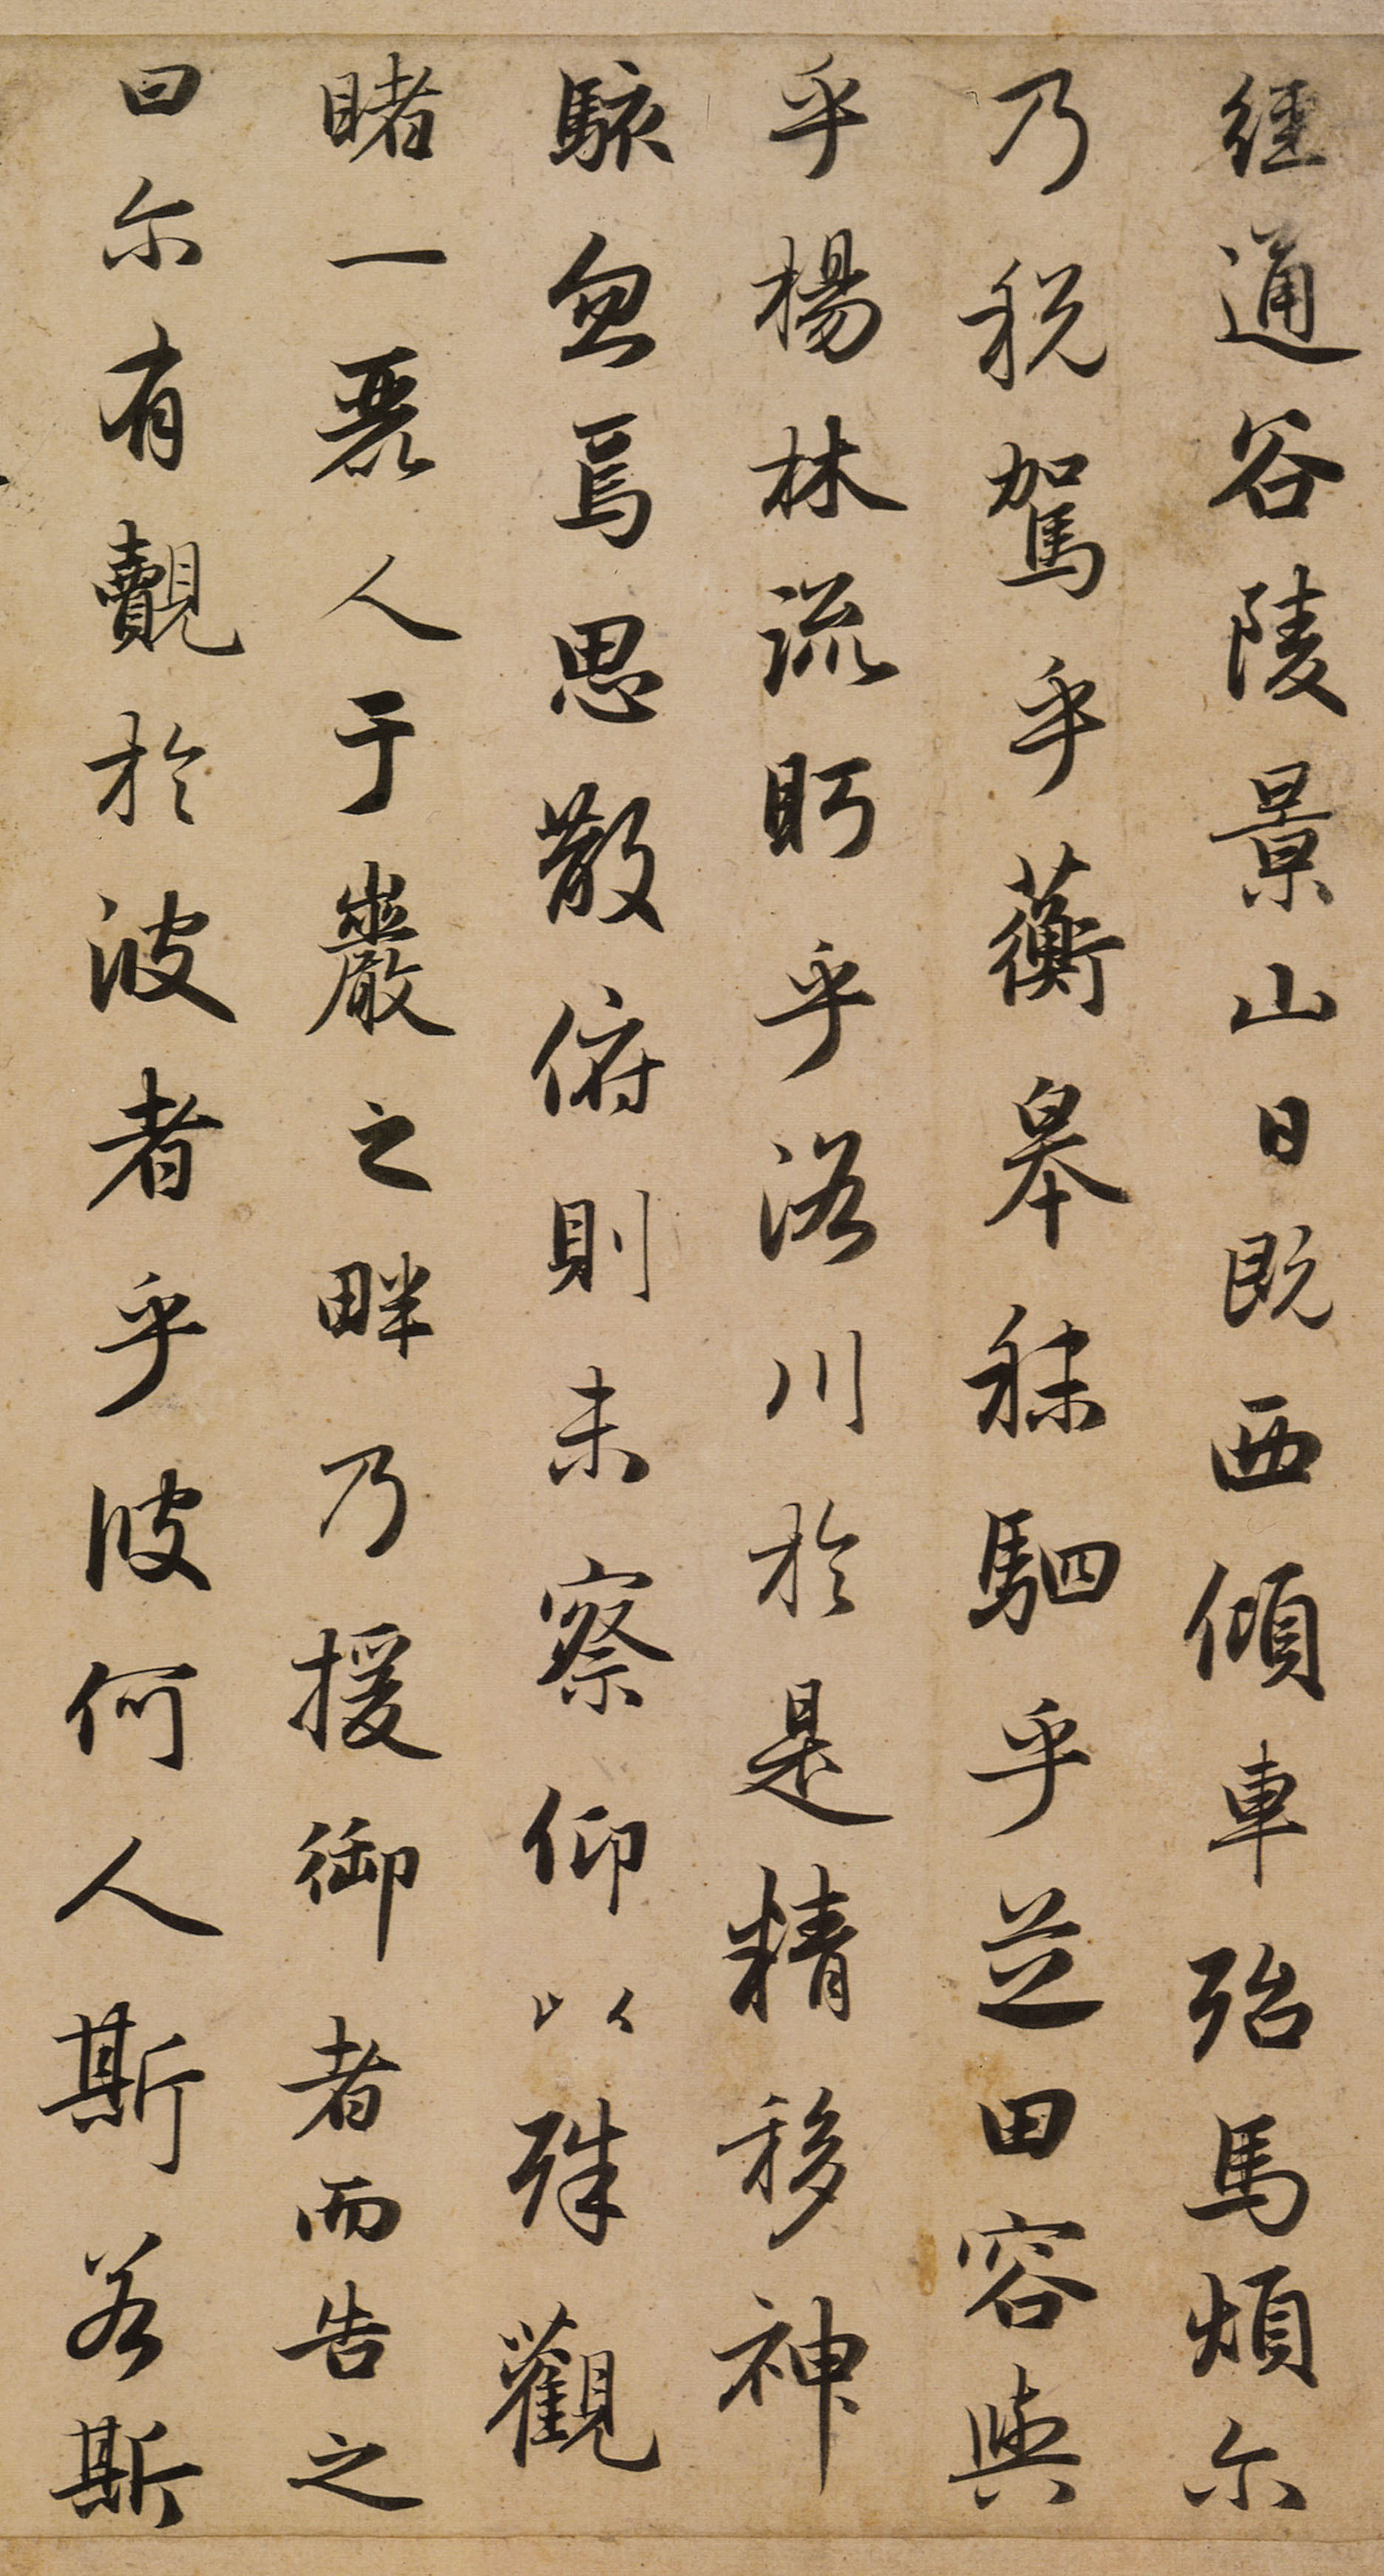 經通谷陵景山日既西傾車殆馬煩尓
乃税駕乎蘅皋秣駟乎芝田容與
乎楊林流眄乎洛川於是精移神
駭忽焉思散俯則未察仰以殊觀
睹一麗人于巖之畔乃援御者而告之
曰尓有覿於彼者乎彼何人斯若斯